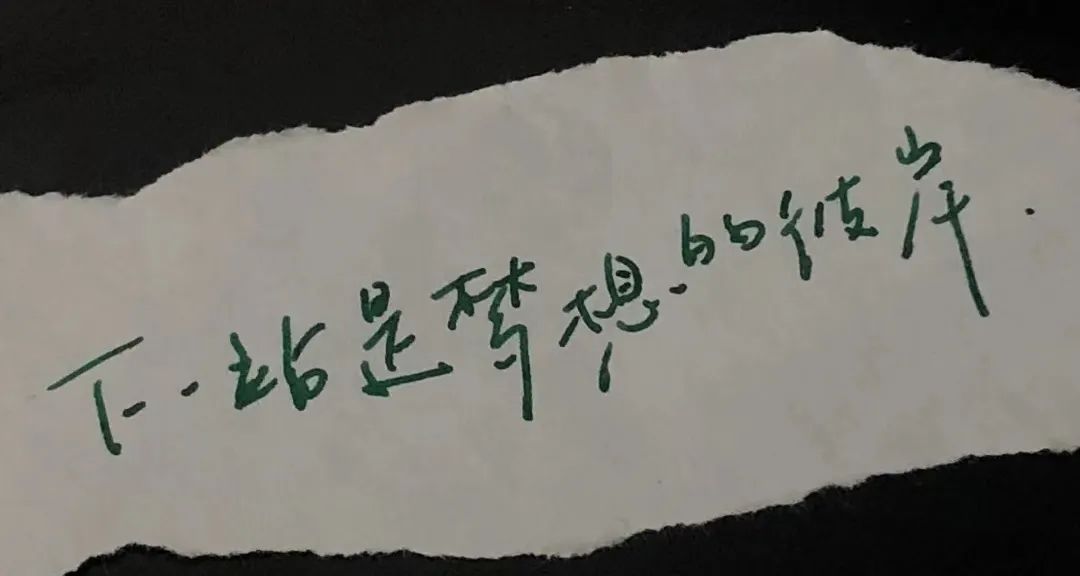 下一站是梦想的彼岸.